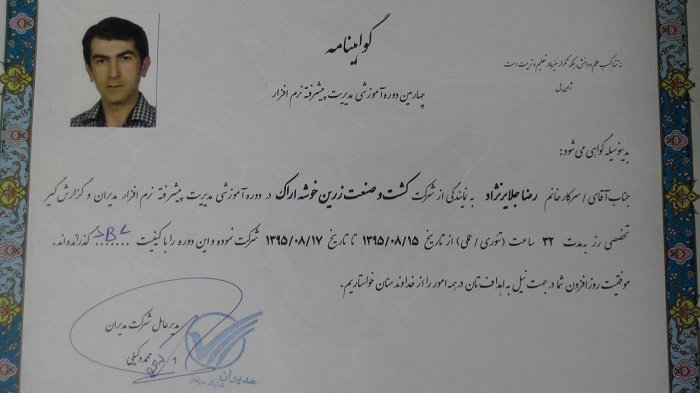 گواهینامه
نه تنها کسب علم و دانش، بلکه تکرار بنیاد تعلیم و تربیت است
ژان پل
چهارمین دوره آموزشی مدیریت پیشرفته نرم افزار
بدینوسیله گواهی می شود:
جناب آقای / سرکار خانم رضا جلایرنژاد به نمایندگی از شرکت کشت و صنعت زرین خوشه اراک در دوره آموزشی مدیریت پیشرفته نرم افزار مدیران و گزارش گیر
تخصصی رز به مدت ۳۲ ساعت (تئوری / عملی) از تاریخ ۱۳۹۵/۰۸/۱۵ تا تاریخ ۱۳۹۵/۰۸/۱۷ شرکت نموده و این دوره را با کیفیت ........ گذرانده اند.
موفقیت روز افزون شما در جهت نیل به اهدافتان در همه امور را از خداوند منان خواستاریم.
مدیر عامل شرکت مدیران
محمد وکیلی
مدیران